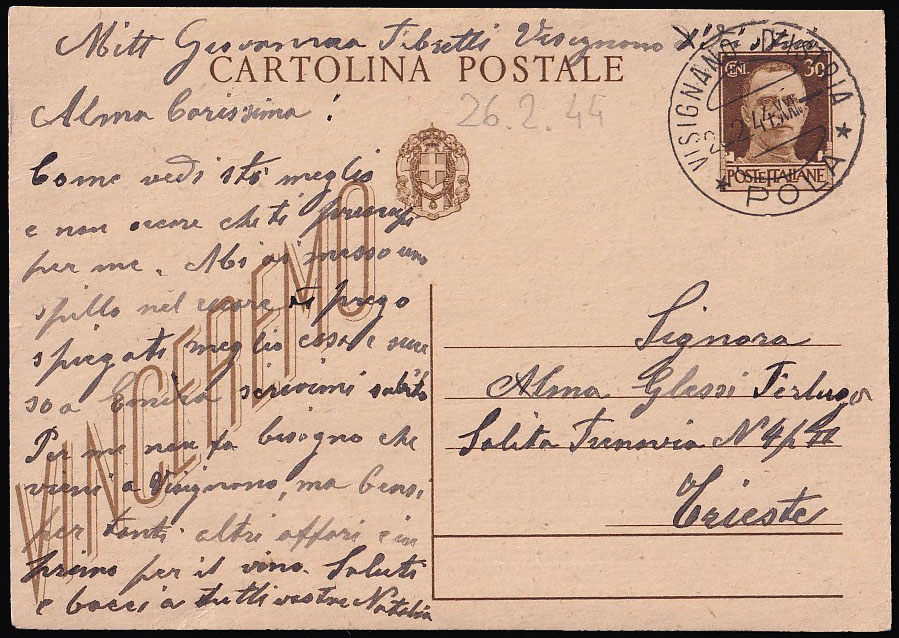 Mitt Giovanna Tibretti Visignano
CARTOLINA POSTALE
VISIGNANO D'ISTRIA
POLA
CENT. 30
POSTE ITALIANE
26.2.44
Alma Carissima!
Come vedi stò meglio
e non occore che ti
per me. Mi ai messo uno
spillo nel cuore ti prego
spiegati meglio cosa e succe
so a Emilia scrivimi subito
Per me non fa bisogno che
vieni a Visignano, ma bensi
per tanti altri affari e in
primo per il vino. Saluti
e bacci a tutti vostra Natalia
VINCEREMO
Signora
Alma Glessi
Salita Trenovia N 4/
Trieste